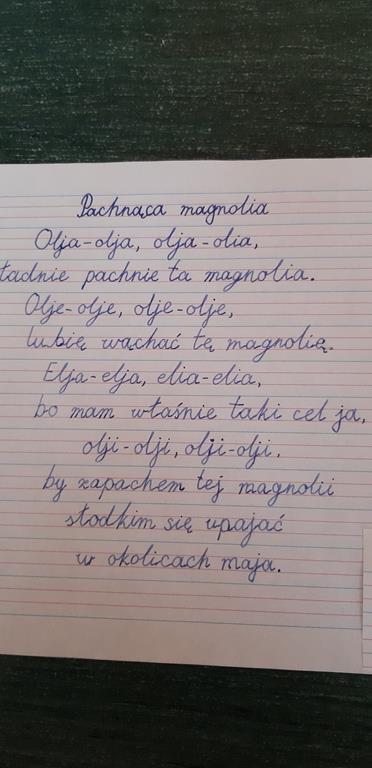 Pachnąca magnolia
Olja-olja, olja-olia,
ładnie pachnie ta magnolia.
Olje-olje, olje-olje,
lubię wąchać tę magnolię.
Elja-elja, elia-elia,
bo mam właśnie taki cel ja,
olji-olji, olji-olji.
by zapachem tej magnolii
słodkim się upajać
w okolicach maja.